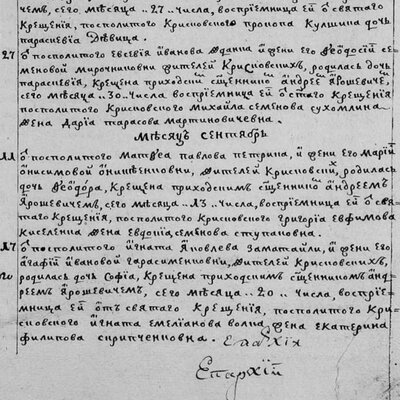 чемъ, сего мѣсяца ..27.. числа, воспрѣемница ей ѿ святаго
Крещенія, посполитого Крисковского прокопа Кулшина дочь
параскевія Дѣвица.
27 ѿ посполитого Евсевія иванова и жени его Ѳеодосіи се-
меновой мирочниковни жителей Крисковскихъ, родилась дочь
параскевія, Крещена приходскимъ священникомъ андреемъ Ярошевичемъ,
сего мѣсяца ..30.. числа воспрѣемница ей ѿ стаго Крещенія
посполитого Крисковского михаила семенова сухомлина
жена дарія тарасова мартиновичевна.
мѣсяцъ сентябрь
11 ѿ посполитого матѳеа павлова петрина, и жени его маріи
онисимовой жителей Крисковскихъ, родилась
дочь Ѳеодора, Крещена приходскимъ священникомъ андреемъ
Ярошевичемъ, сего мѣсяца ..13.. числа, воспрѣемница ей ѿ свя-
таго Крещенія, посполитого Крисковского григорія евфимова
киселенка жена евдокія, семенова ступаковна.
17 ѿ посполитого игната Яковлева Заматайли, и жени его
агафіи ивановой гарасименковни, жителей Крисковскихъ,
20 родилась дочь софія, Крещена приходскимъ священникомъ анд-
реемъ Ярошевичемъ, сего мѣсяца ..20.. числа, воспрѣе-
мница ей отъ святаго Крещенія, посполитого Кри-
сковского игната емеліанова волка, жена екатерина
филипова скрипченковна.
Епархіи